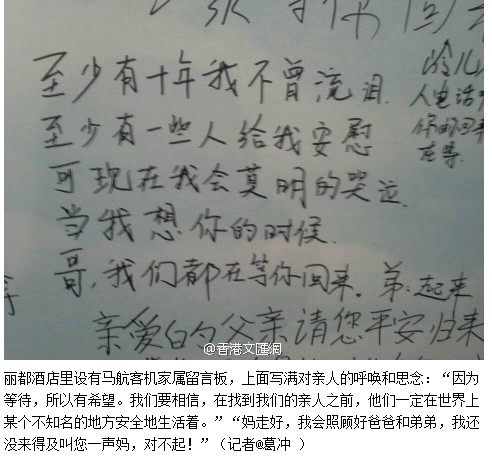 至少有十年我不曾流泪
至少有一些人给我安慰
可现在我会莫明的哭泣
当我想你的时候
哥,我们都在等你回来。弟:起来
亲爱的父亲请您平安归来
人电话
在等.
@香港文匯網
丽都酒店里设有马航客机家属留言板，上面写满对亲人的呼唤和思念：“因为
等待，所以有希望。我们要相信，在找到我们的亲人之前，他们一定在世界上
某个不知名的地方安全地生活着。”“妈走好，我会照顾好爸爸和弟弟，我还
没来得及叫您一声妈，对不起！”（记者@葛冲 ）